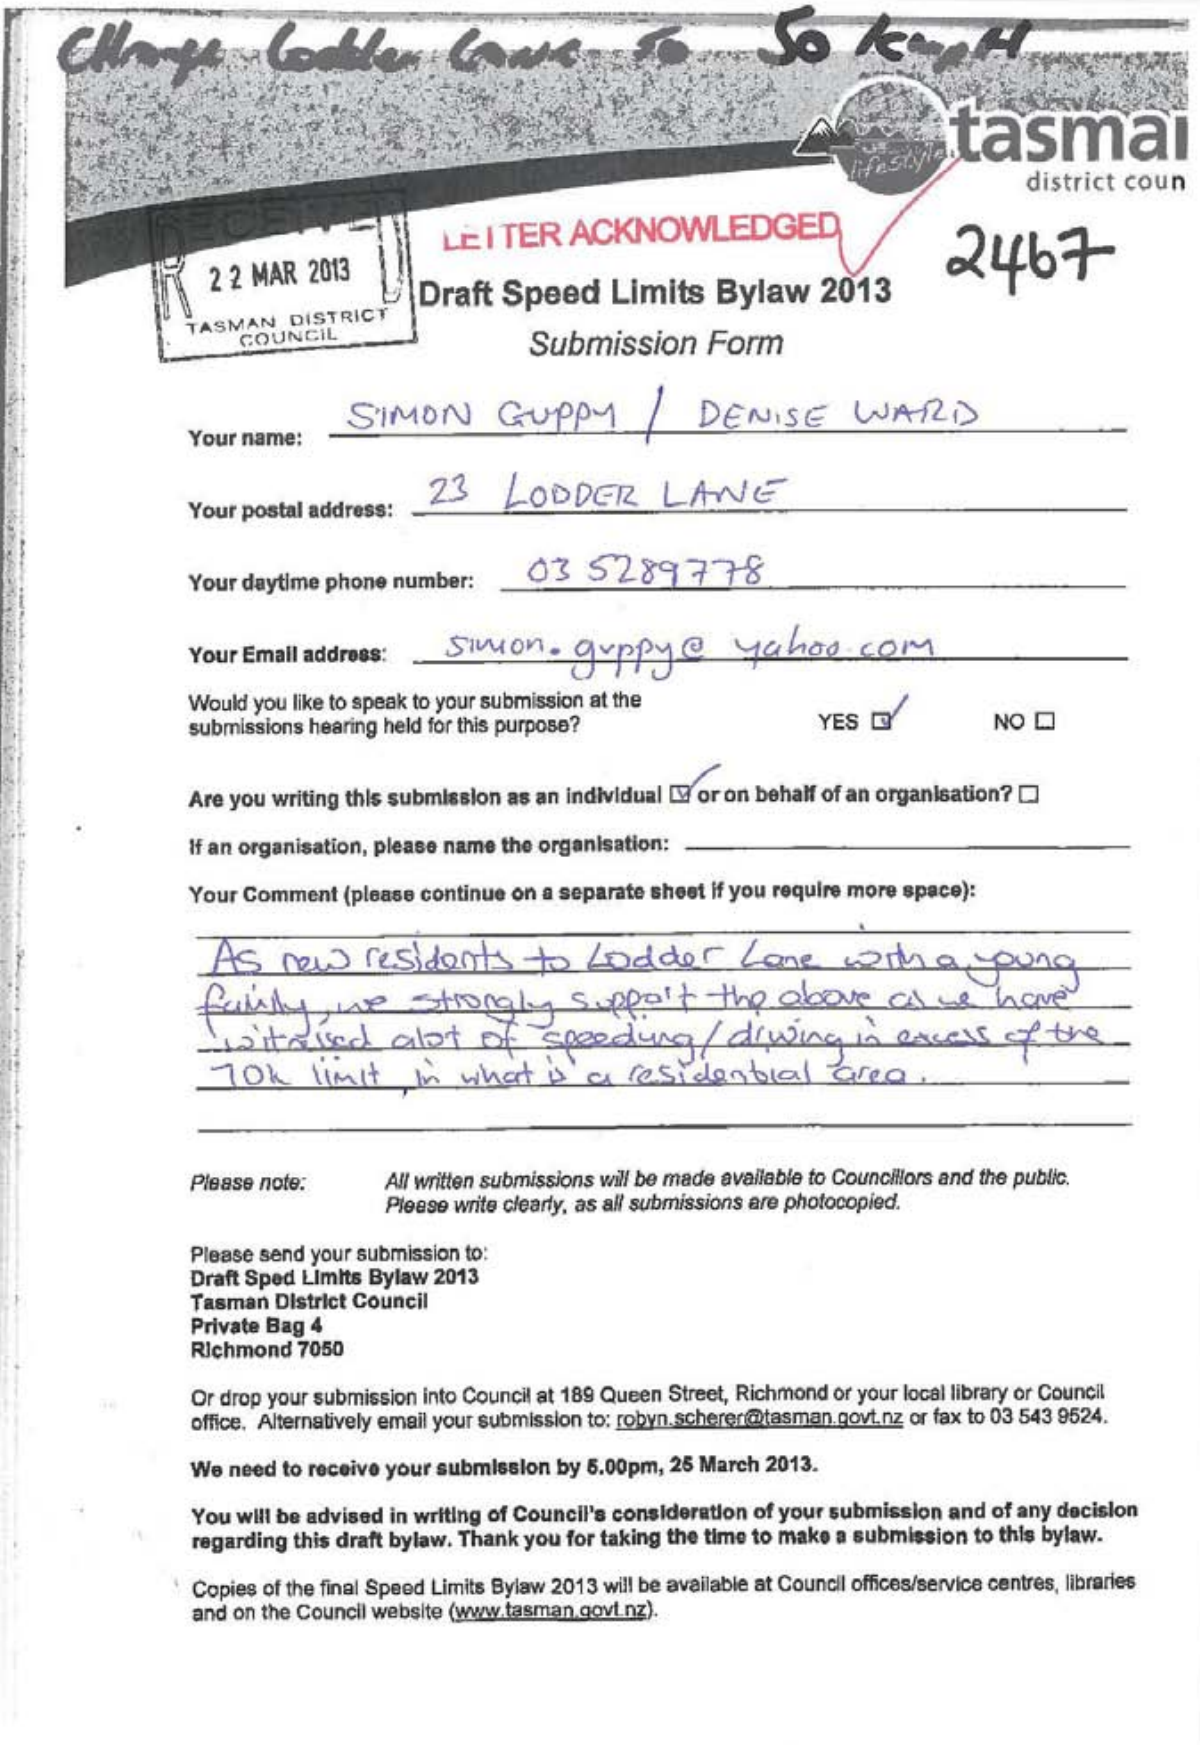 Change Lodder Lane To 50 kmpH
us
lifestyle
tasmai
district coun
LETTER ACKNOWLEDGED
2467
RECEIVED
22 MAR 2013
TASMAN DISTRICT
COUNCIL
Draft Speed Limits Bylaw 2013
Submission Form
Your name: SIMON GUPPY / DENISE WARD
Your postal address: 23 LODDER LANE
Your daytime phone number: 03 5289778
Your Email address: simon.guppy@yahoo.com
Would you like to speak to your submission at the
submissions hearing held for this purpose? YES ☑ NO ☐
Are you writing this submission as an individual ☑ or on behalf of an organisation? ☐
If an organisation, please name the organisation:
Your Comment (please continue on a separate sheet if you require more space):
As new residents to Lodder Lane with a young
family, we strongly support the above as we have
witnessed alot of speeding/driving in excess of the
70k limit in what is a residential area.
Please note: All written submissions will be made available to Councillors and the public.
Please write clearly, as all submissions are photocopied.
Please send your submission to:
Draft Sped Limits Bylaw 2013
Tasman District Council
Private Bag 4
Richmond 7050
Or drop your submission into Council at 189 Queen Street, Richmond or your local library or Council
office. Alternatively email your submission to: robyn.scherer@tasman.govt.nz or fax to 03 543 9524.
We need to receive your submission by 5.00pm, 25 March 2013.
You will be advised in writing of Council's consideration of your submission and of any decision
regarding this draft bylaw. Thank you for taking the time to make a submission to this bylaw.
Copies of the final Speed Limits Bylaw 2013 will be available at Council offices/service centres, libraries
and on the Council website (www.tasman.govt.nz).